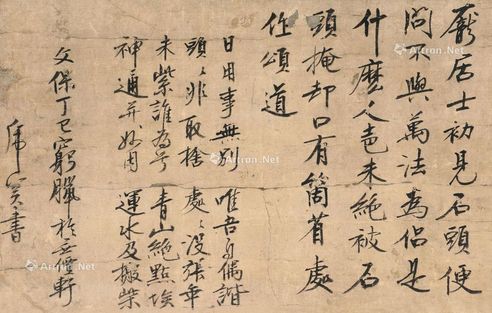 龐居士初見石頭便
問不與萬法為侶是
什麼人声未絶被石
頭掩却口有箇省處
作頌道
日用事無別 唯吾自偶諧
頭〻非取捨 處〻沒張乖
朱紫誰為号 青山絶點埃
神通并妙用 運水及搬柴
文保丁巳窮臘於軒
虎書
Artron.Net